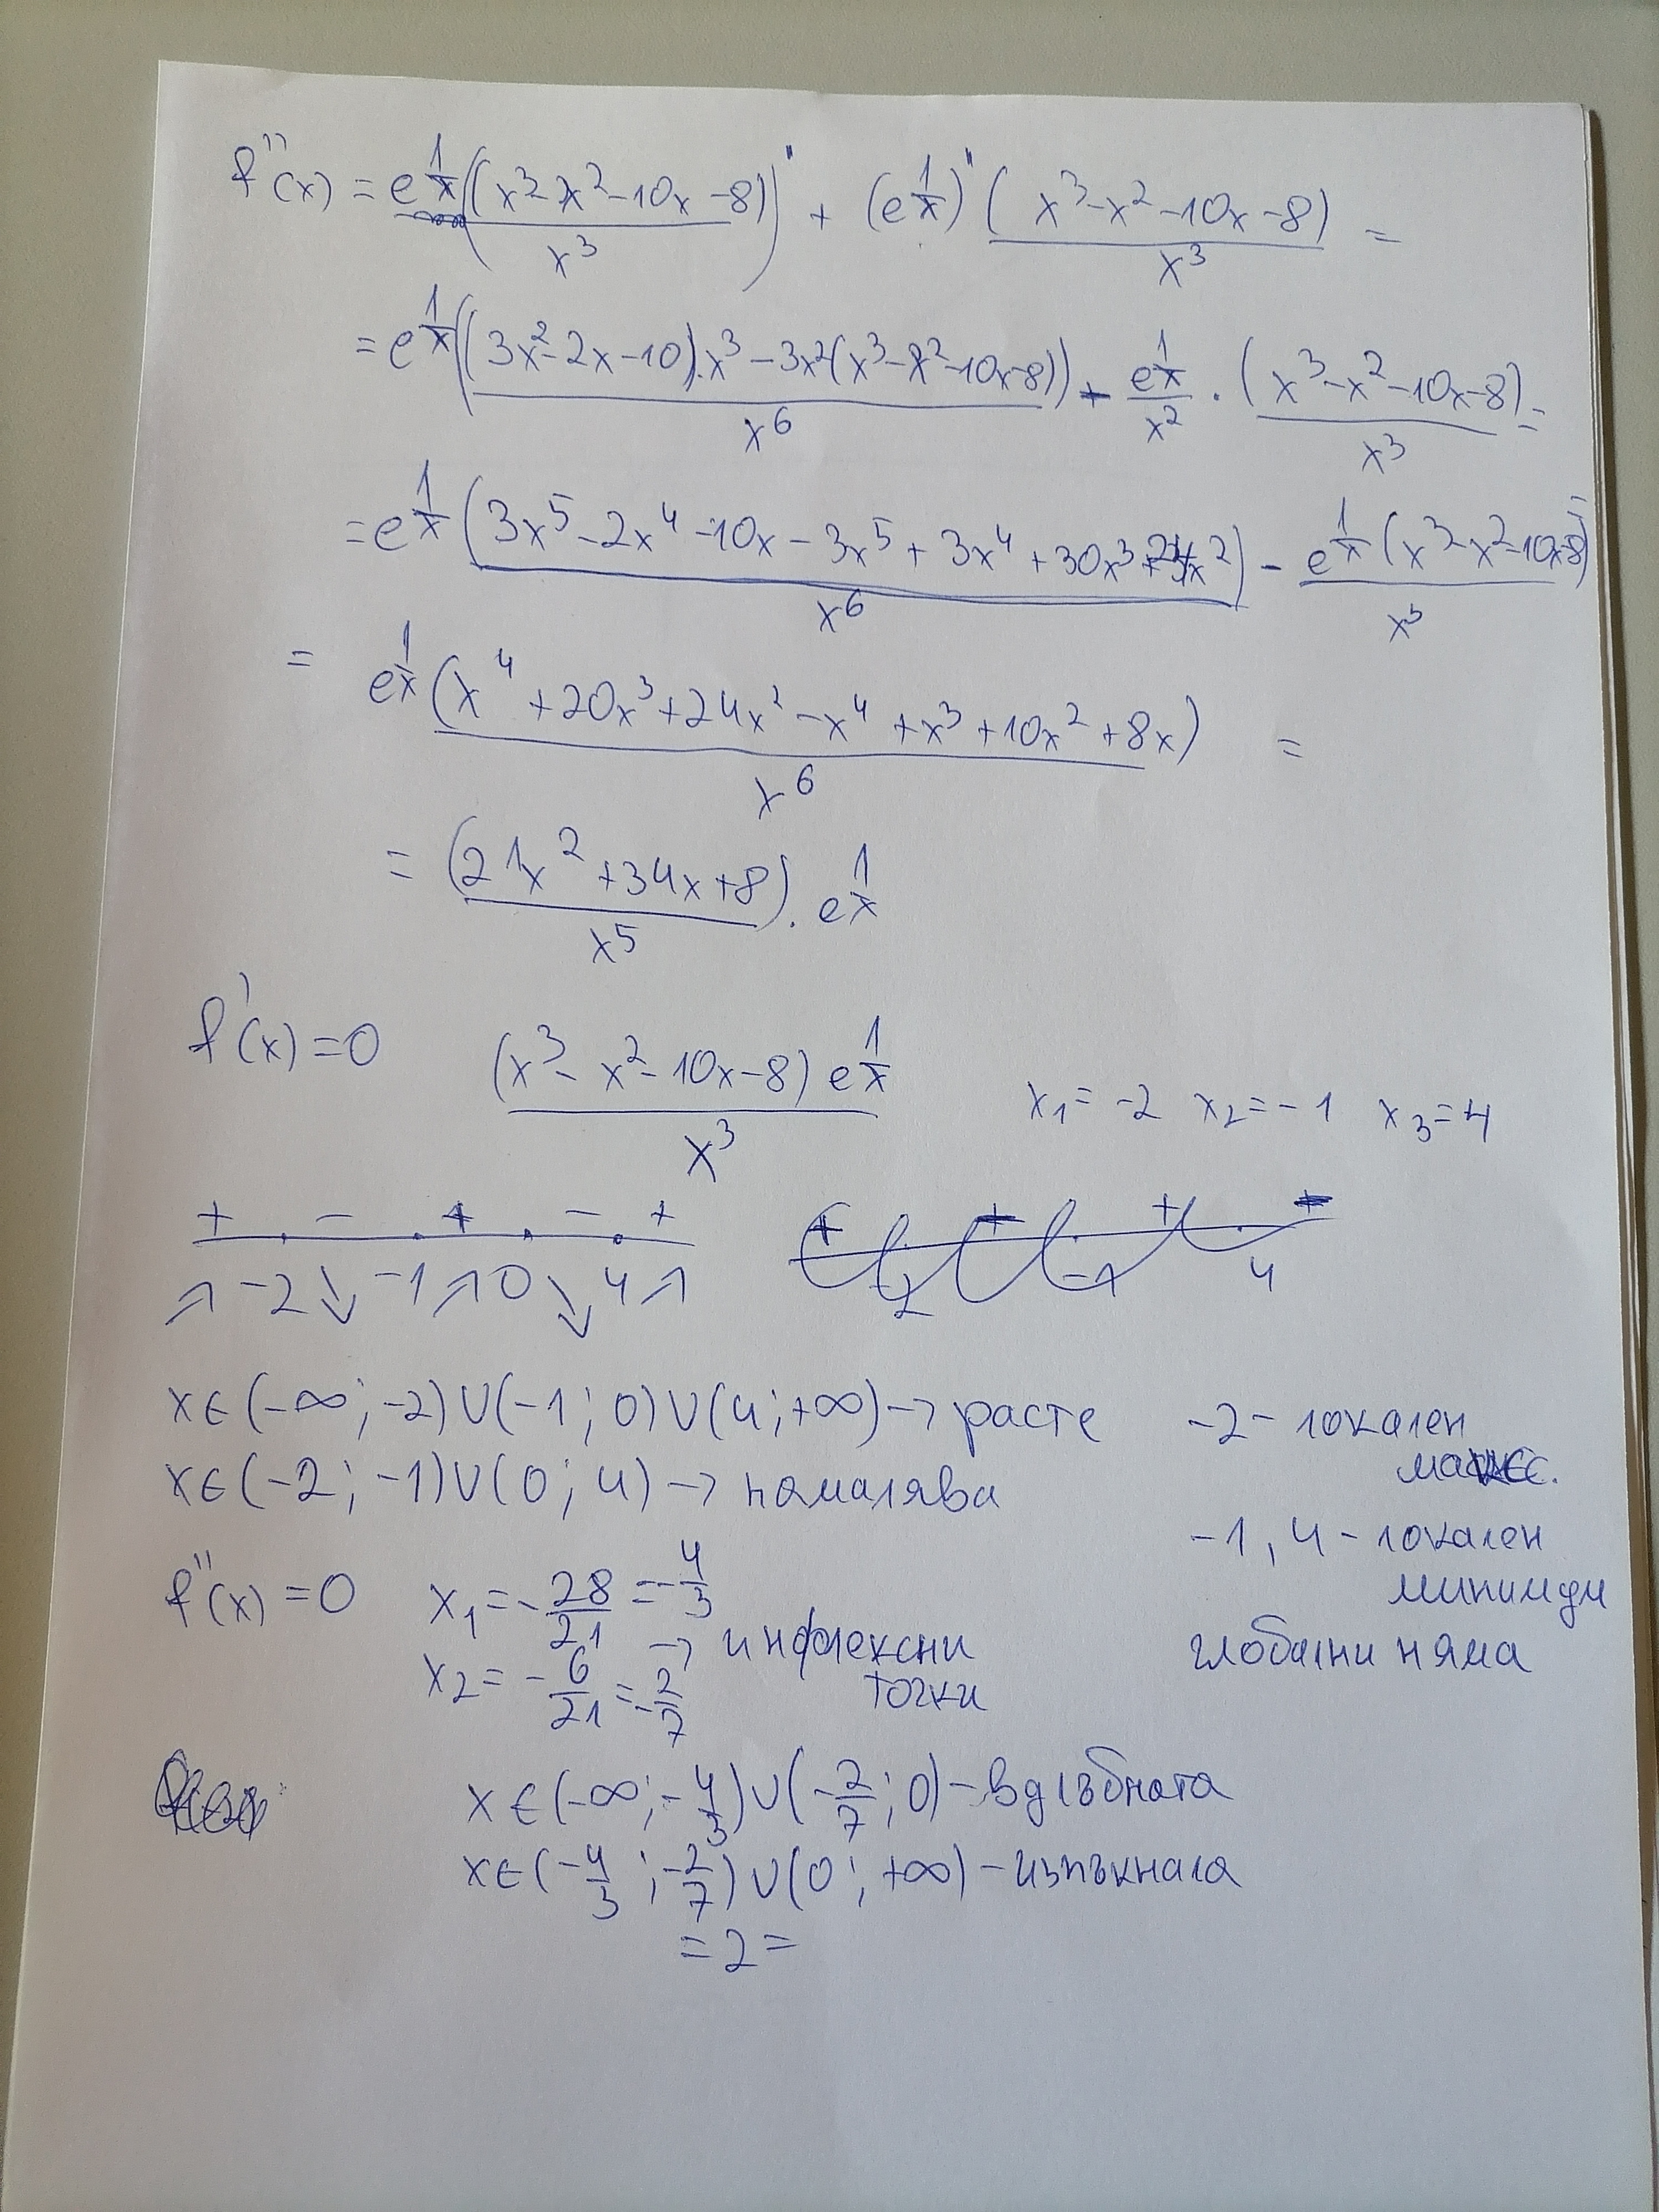 f''(x) = e^(1/x) ((x³-x²-10x-8)/x³)' + (e^(1/x))' (x³-x²-10x-8)/x³ =
= e^(1/x) (((3x²-2x-10).x³-3x²(x³-x²-10x-8))/x⁶) - e^(1/x)/x² . (x³-x²-10x-8)/x³ =
= e^(1/x) (3x⁵-2x⁴-10x-3x⁵+3x⁴+30x³+24x²)/x⁶ - e^(1/x)(x³-x²-10x-8)/x⁵ =
= e^(1/x) (x⁴+20x³+24x²-x⁴+x³+10x²+8x)/x⁶ =
= (21x²+34x+8)/x⁵ . e^(1/x)
f'(x)=0 (x³-x²-10x-8)e^(1/x)/x³ x₁=-2 x₂=-1 x₃=4
+ - + - + + + + +
↗ -2 ↘ -1 ↗ 0 ↘ 4 ↗ -2 -1 4
x∈(-∞;-2)∪(-1;0)∪(4;+∞) → расте -2 - локален
макс.
x∈(-2;-1)∪(0;4) → намалява
-1, 4 - локален
минимум
f''(x)=0 x₁=-28/21=-4/3
x₂=-6/21=-2/7 → инфлексни
точки
глобални няма
x∈(-∞;-4/3)∪(-2/7;0) - вдлъбната
x∈(-4/3;-2/7)∪(0;+∞) - изпъкнала
=2=